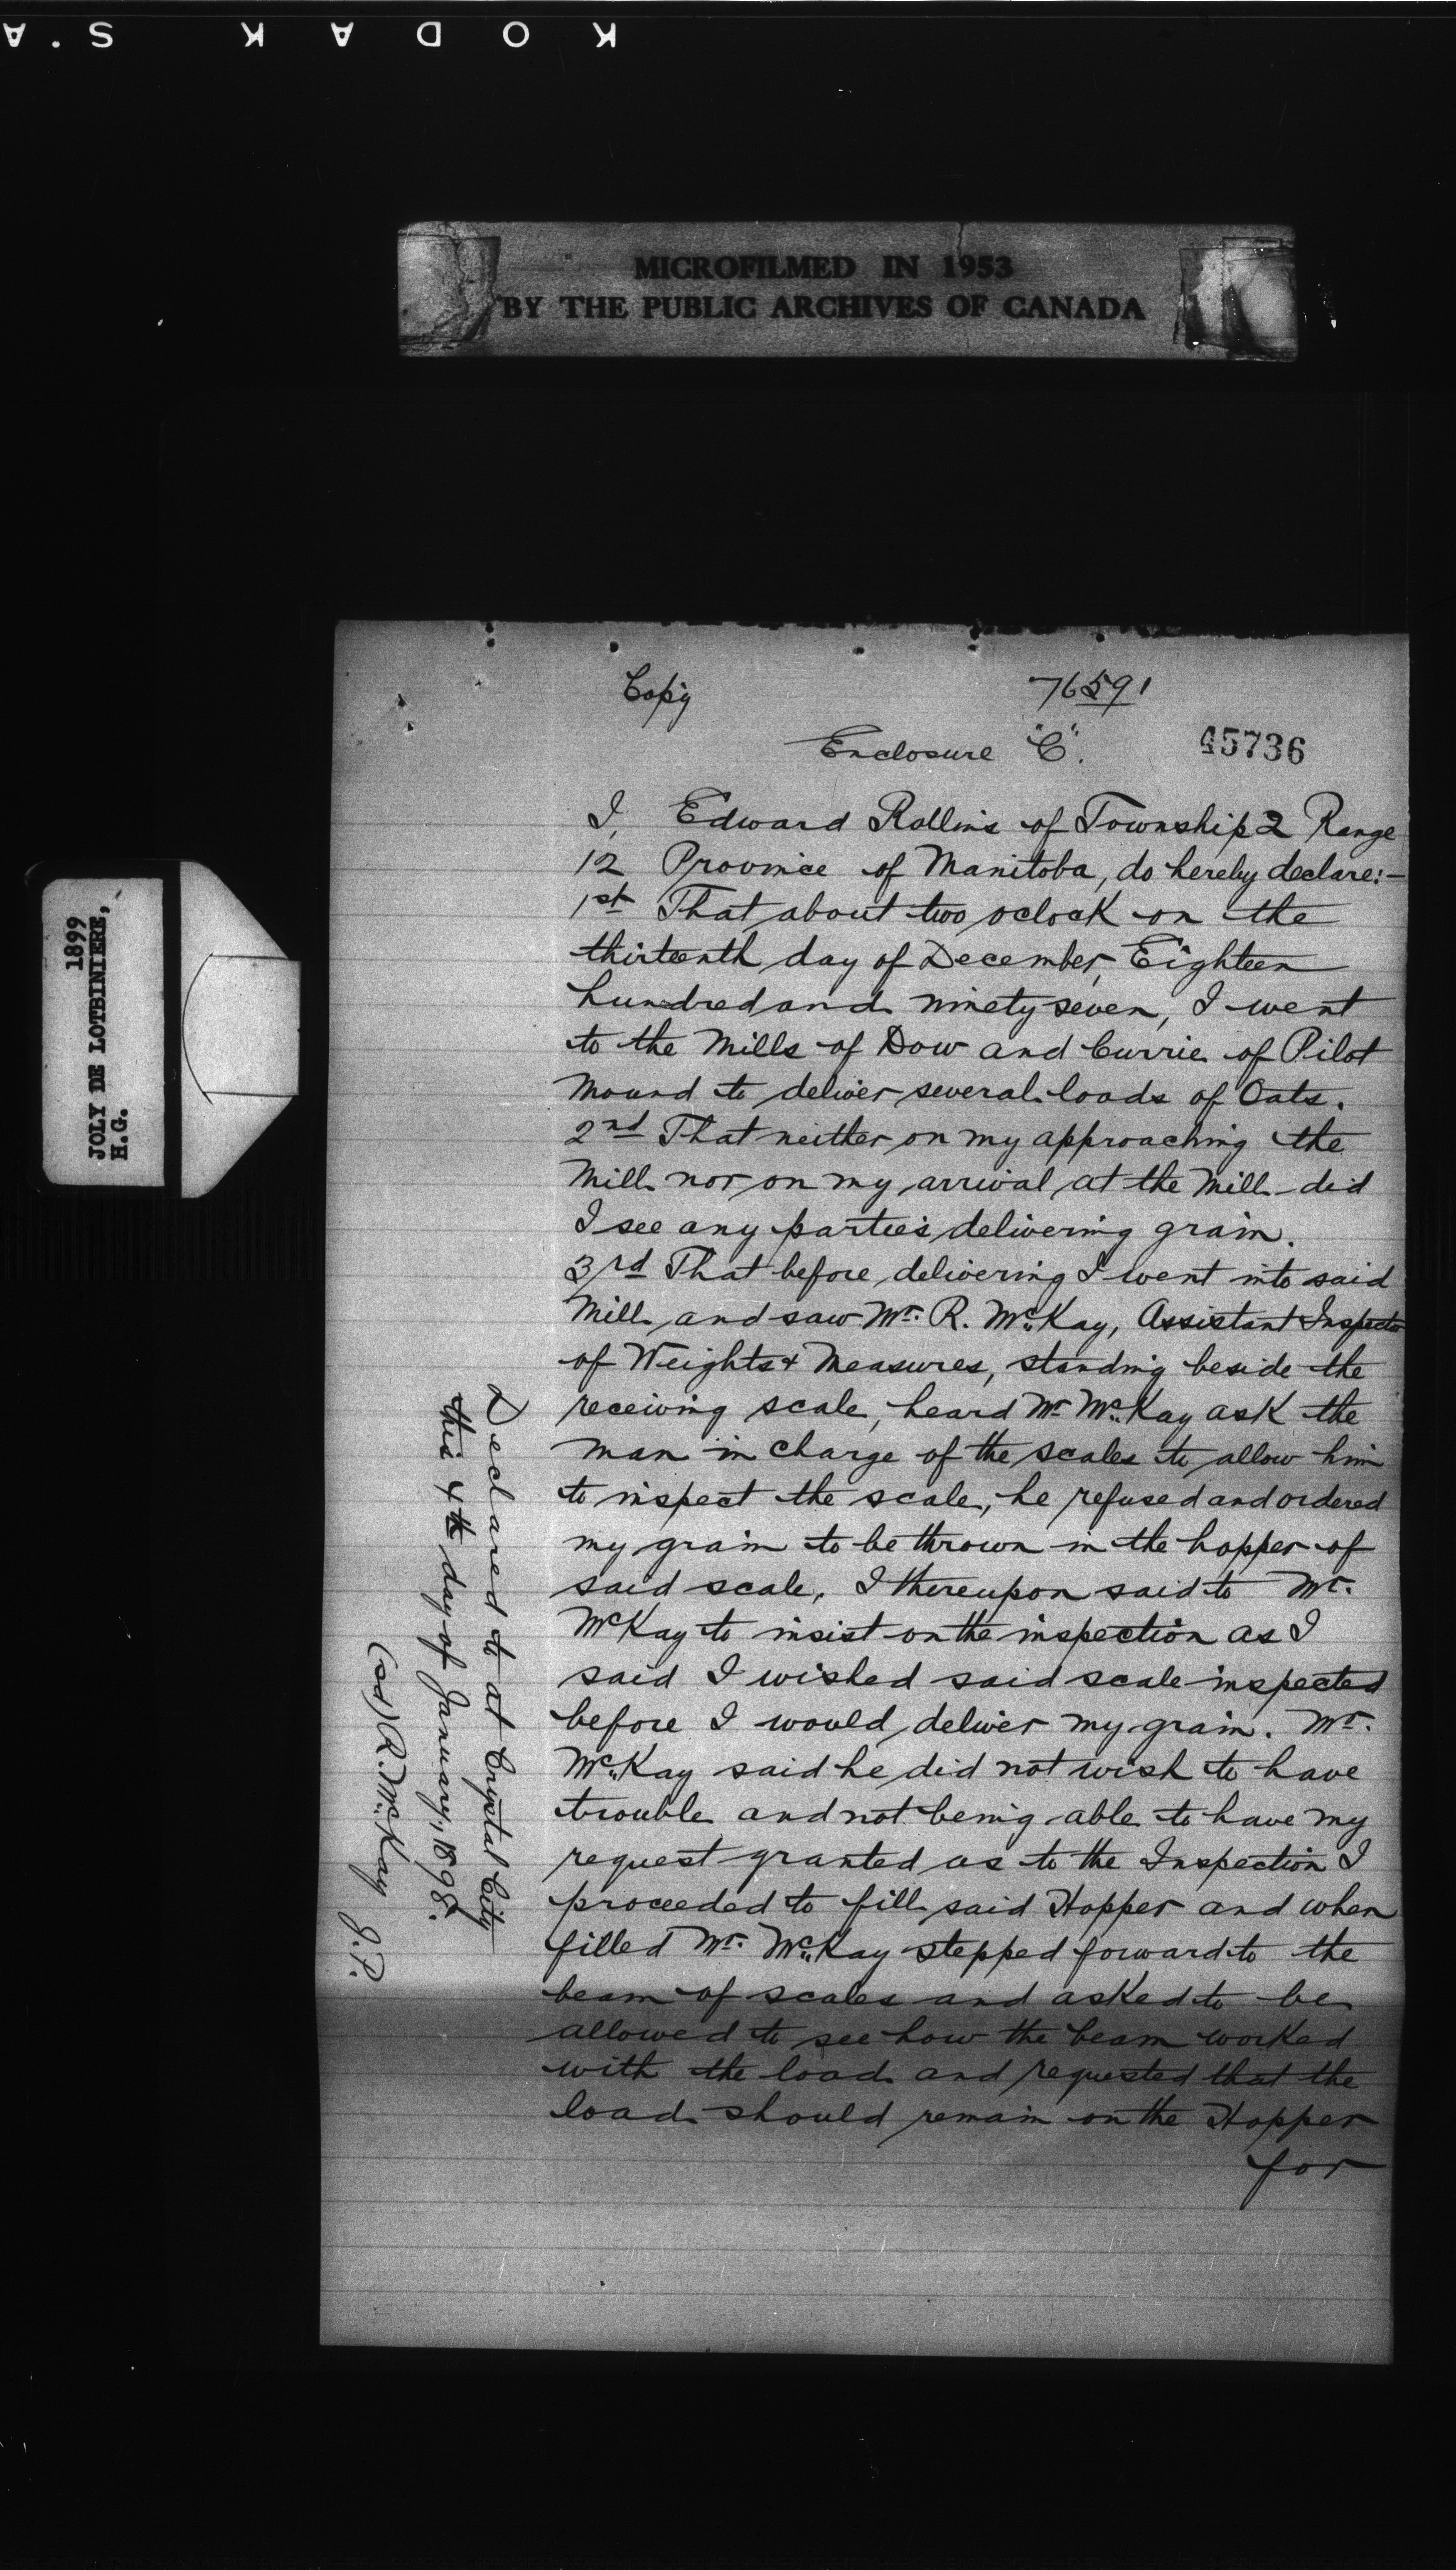 KODAK S.A
MICROFILMED IN 1953
BY THE PUBLIC ARCHIVES OF CANADA
1899
JOLY DE LOTBINIERE,
H.G.
Copy
76591
Enclosure "C".
45736
I, Edward Rollins of Township 2 Range
12 Province of Manitoba, do hereby declare:-
1st That about two oclock on the
thirteenth day of December, Eighteen
hundred and ninety seven, I went
to the Mills of Dow and Currie of Pilot
Mound to deliver several loads of Oats.
2nd That neither on my approaching the
Mill nor on my arrival at the Mill did
I see any parties delivering grain.
3rd That before delivering I went into said
Mill and saw Mr. R. McKay, Assistant Inspector
of Weights & Measures, standing beside the
receiving scale, heard Mr McKay ask the
man in charge of the scales to allow him
to inspect the scale, he refused and ordered
my grain to be thrown in the hopper of
said scale, I thereupon said to Mr.
McKay to insist on the inspection as I
said I wished said scale inspected
before I would deliver my grain. Mr.
McKay said he did not wish to have
trouble and not being able to have my
request granted as to the Inspection I
proceeded to fill said Hopper and when
filled Mr. McKay stepped forward to the
beam of scales and asked to be
allowed to see how the beam worked
with the load and requested that the
load should remain on the Hopper
for
Declared to at Crystal City
this 4th day of January, 1898.
(sd) R. McKay J.P.